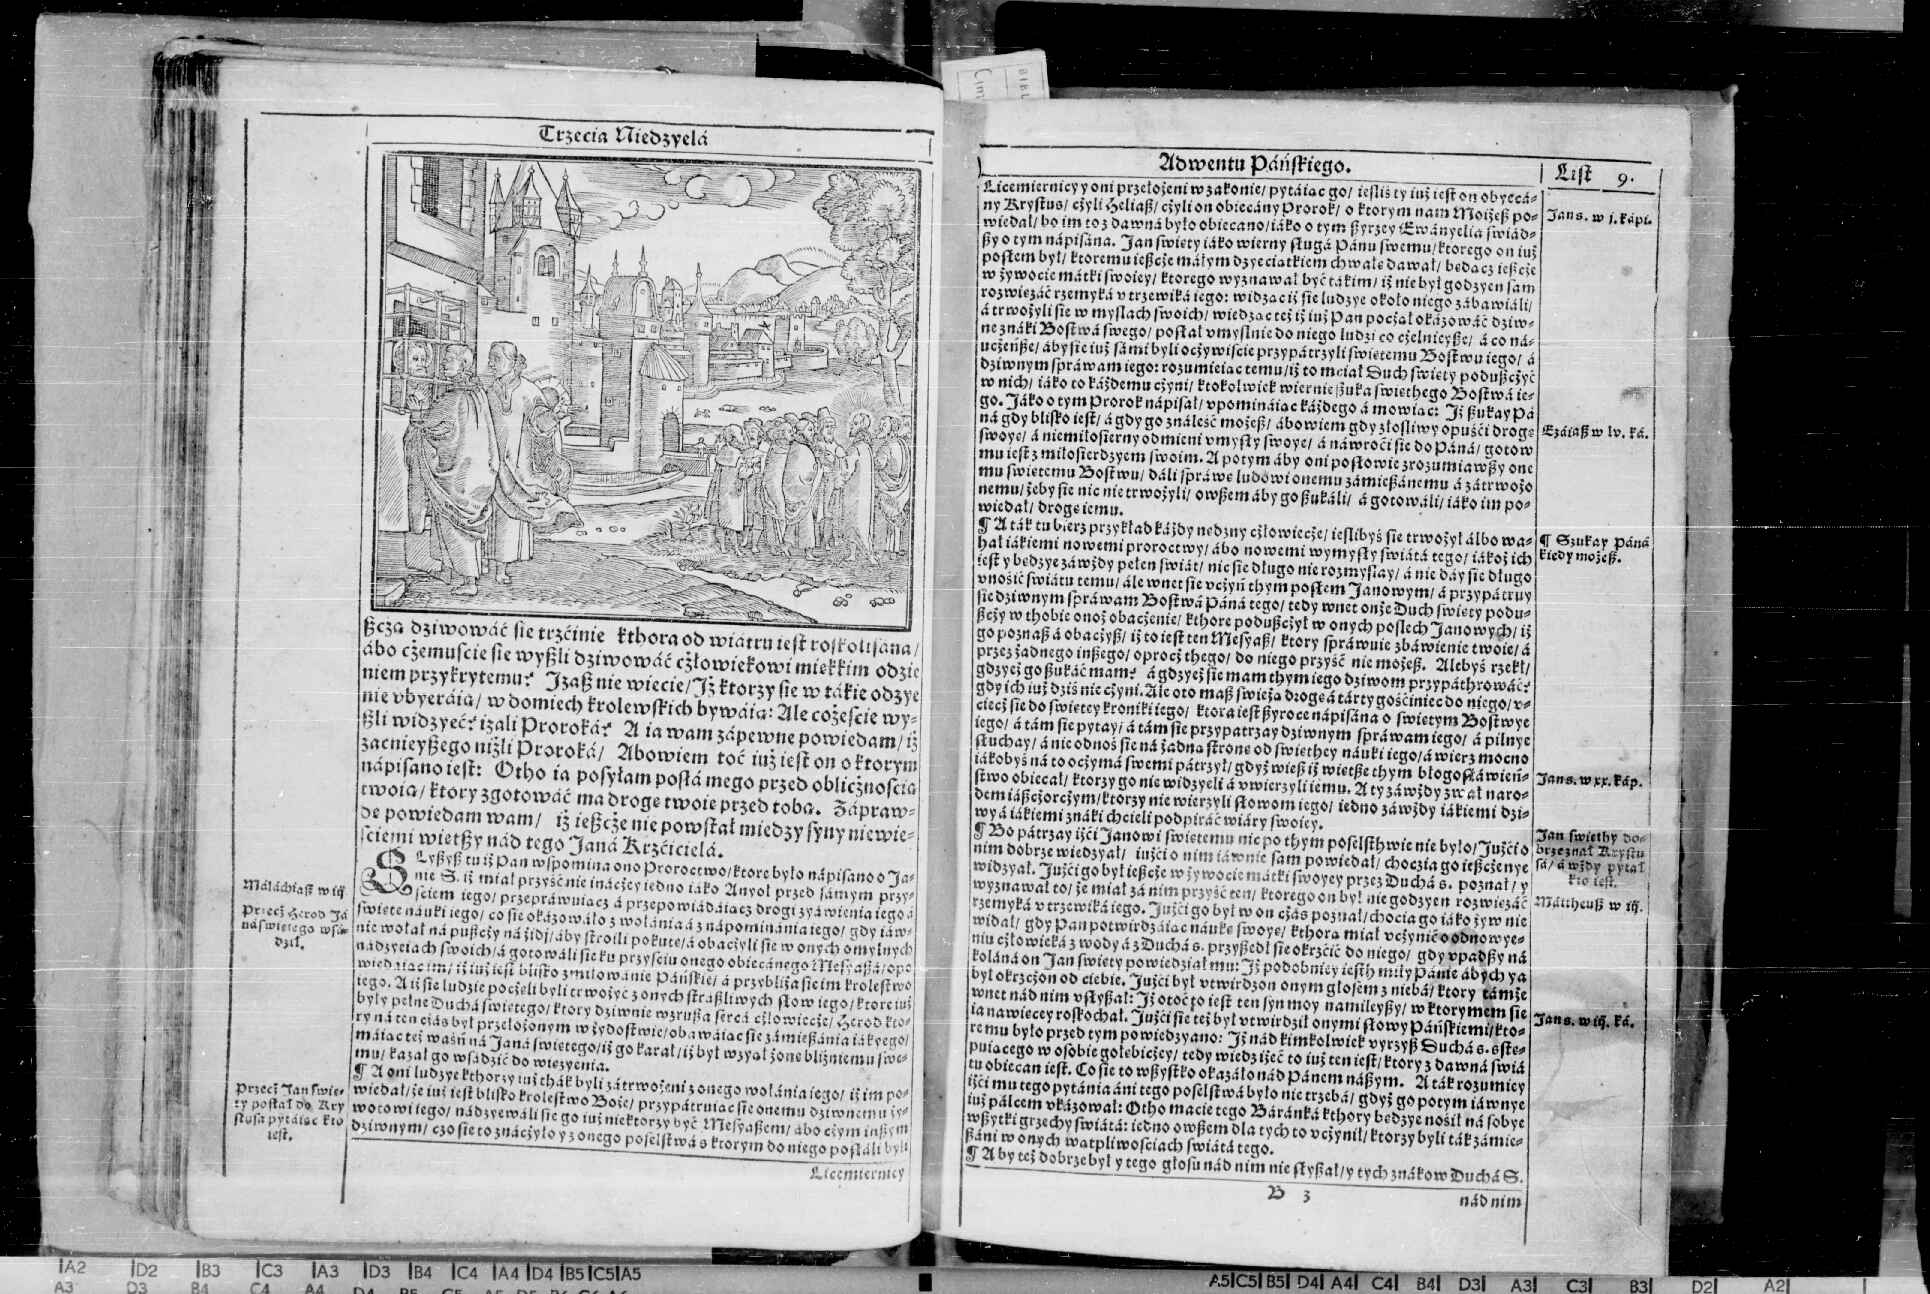 Trzecia Niedzyelá
ßcżą dziwowáć sie trzćinie kthora od wiátru iest roskolisána/
ábo cżemuście sie wyßli dziwowáć cżłowiekowi miękkim odzie
niem przykrytemu? Izaß nie wiecie/ Iż ktorzy sie w tákie odzye
nie vbyeráią/ w domiech krolewskich bywáią: Ale cożeście wy-
ßli widzyeć? izali Proroká? A ia wam zápewne powiedam/ iż
zacnieyßego niżli Proroká/ Abowiem toć iuż iest on o ktorym
nápisano iest: Otho ia posyłam posłá mego przed oblicżnoscią
twoią/ ktory zgotowáć ma drogę twoię przed tobą. Zápraw-
dę powiedam wam/ iż ießcże nie powstał miedzy syny niewie-
ściemi więtßy nád tego Janá Krzćicielá.
Słyßyß tu iż Pan wspomina ono Proroctwo/ ktore było nápisano o Ja-
nie S. iż miał przyść nie inácżey iedno iáko Anyoł przed sámym przy-
ściem iego/ przepráwuiącz á przepowiádáiącz drogi zyáwienia iego á
święte náuki iego/ co sie okázowáło z wołánia á z nápominánia iego/ gdy iáw-
nie wołał ná pußcży ná żidj/ áby stroili pokutę/ á obacżyli sie w onych omylnych
nádzyeiach swoich/ á gotowáli sie ku przysciu onego obiecánego Mesyaßá/ opo
wiedáiąc im/ iż iuż iest blisko zmiłowánie Páńskie/ á przybliża sie im krolestwo
iego. A iż sie ludzie pocżęli byli trwożyć z onych stráßliwych słow iego/ ktore iuż
były pełne Duchá świętego/ ktory dziwnie wzrußa sercá cżłowiecże/ Herod kto-
ry ná ten cżás był przełożonym w żydostwie/ obawáiąc sie zámießánia iákyego/
máiąc też waśń ná Janá świętego/ iż go karał/ iż był wzyął żonę bliźniemu swe-
mu/ kazał go wsádzić do więzyenia.
¶ A oni ludzye kthorzy iuż thák byli zátrwożeni z onego wołánia iego/ iż im po-
wiedał/ że iuż iest blisko krolestwo Boże/ przypátruiąc sie onemu dziwnemu ży-
wotowi iego/ nádzyewáli sie go iuż niektorzy być Mesyaßem/ ábo cżym inßym
dziwnym/ czo sie to znácżyło y z onego poselstwá s ktorym do niego posłáli byli
Licemiernicy
Máláchiaß w iij
Przecż Herod Já
ná świętego wsá-
dził.
Przecż Jan świę-
ty posłał do Kry
stusá pytáiąc kto
iest.
Adwentu Páńskiego.
List 9.
Licemiernicy y oni przełożeni w zakonie/ pytáiąc go/ iesliś ty iuż iest on obyecá-
ny Krystus/ cżyli Heliaß/ cżyli on obiecány Prorok/ o ktorym nam Moiżeß po-
wiedał/ bo im to z dawná było obiecano/ iáko o tym ßyrzey Ewányelia świád-
ßy o tym nápisána. Jan święty iáko wierny sługá Pánu swemu/ ktorego on iuż
posłem był/ ktoremu ießcże máłym dzyeciątkiem chwałę dawał/ będącz ießcże
w żywocie mátki swoiey/ ktorego wyznawał być tákim/ iż nie był godzyen sam
rozwięzáć rzemyká v trzewiká iego: widząc iż sie ludzye około niego zábawiáli/
á trwożyli sie w myślach swoich/ wiedząc też iż iuż Pan pocżął okázowáć dziw-
ne znáki Bostwá swego/ posłał vmyślnie do niego ludzi co cżelnieyße/ á co ná-
ucżeńße/ áby sie iuż sámi byli ocżywiście przypátrzyli świętemu Bostwu iego/ á
dziwnym spráwam iego: rozumieiąc temu/ iż to miał Duch święty podußcżyć
w nich/ iáko to káżdemu cżyni/ ktokolwiek wiernie ßuka świethego Bostwá ie-
go. Jáko o tym Prorok nápisał/ vpomináiąc káżdego á mowiąc: Iż ßukay Pá
ná gdy blisko iest/ á gdy go ználeść możeß/ ábowiem gdy złosliwy opuści drogę
swoyę/ á niemiłosierny odmieni vmysły swoye/ á náwroći sie do Páná/ gotow
mu iest z miłosierdzyem swoim. A potym áby oni posłowie zrozumiawßy one
mu świętemu Bostwu/ dáli spráwę ludowi onemu zámießánemu á zátrwożo
nemu/ żeby sie nic nie trwożyli/ owßem áby go ßukáli/ á gotowáli/ iáko im po-
wiedał/ drogę iemu.
¶ A ták tu bierz przykład káżdy nędzny cżłowiecże/ ieslibyś sie trwożył álbo wa-
hał iákiemi nowemi proroctwy/ ábo nowemi wymysły świátá tego/ iákoż ich
iest y będzye záwżdy pełen świát/ nic sie długo nie rozmyślay/ á nie day sie długo
vnośić świátu temu/ ále wnet sie vcżyń thym posłem Janowym/ á przypátruy
sie dziwnym spráwam Bostwá Páná tego/ tedy wnet onże Duch święty podu-
ßcży w thobie onoż obacżenie/ kthore podußcżył w onych poslech Janowych/ iż
go poznaß á obacżyß/ iż to iest ten Mesyaß/ ktory spráwuie zbáwienie twoie/ á
przez żadnego inßego/ oprocż thego/ do niego przyść nie możeß. Alebyś rzekł/
gdzyeż go ßukáć mam? á gdzyeż sie mam thym iego dziwom przypáthrowáć?
gdy ich iuż dziś nie cżyni. Ale oto maß świeżą drogę á tárty gościniec do niego/ v-
ciecż sie do świętey kroniki iego/ ktora iest ßyroce nápisána o świętym Bostwye
iego/ á tám sie pytay/ á tám sie przypatrzay dziwnym spráwam iego/ á pilnye
słuchay/ á nie odnoś sie ná żadną stronę od swiethey náuki iego/ á wierz mocno
iákobyś ná to ocżymá swemi pátrzył/ gdyż wieß iż więtße thym błogosłáwień-
stwo obiecał/ ktorzy go nie widzyeli á vwierzyli iemu. A ty záwżdy zwał naro-
dem iáßcżorcżym/ ktorzy nie wierzyli słowom iego/ iedno záwżdy iákiemi dzi-
wy á iákiemi znáki chcieli podpiráć wiáry swoiey.
¶ Bo pátrzay iżći Janowi świętemu nic po thym poselsthwie nie było/ Jużći o
nim dobrze wiedzyał/ iużći o nim iáwnie sam powiedał/ chocżia go ießcżenye
widzyał. Jużći go był ießcże w żywocie mátki swoyey przez Duchá s. poznał/ y
wyznawał to/ że miał zá nim przyść ten/ ktorego on był nie godzyen rozwięzáć
rzemyká v trzewiká iego. Jużći go był w on cżás poznał/ chocia go iáko żyw nie
widał/ gdy Pan potwirdzáiąc náukę swoyę/ kthorą miał vcżynić o odnowye-
niu cżłowieká z wody á z Duchá s. przyßedł sie okrzćić do niego/ gdy vpadßy ná
koláná on Jan święty powiedział mu: Iż podobniey iesth miły Pánie ábych ya
był okrzcżon od ciebie. Jużći był vtwirdzon onym głosem z niebá/ ktory tamże
wnet nád nim vsłyßał: Iż otoć to iest ten syn moy namileyßy/ w ktorymem sie
ia nawięcey roskochał. Jużći sie też był vtwirdził onymi słowy Páńskiemi/ kto-
re mu było przed tym powiedzyano: Iż nád kimkolwiek vyrzyß Duchá s. zstę-
puiącego w osobie gołębicżey/ tedy wiedz iżeć to iuż ten iest/ ktory z dawná świá
tu obiecan iest. Co sie to wßystko okazáło nád Pánem náßym. A ták rozumiey
iżći mu tego pytánia áni tego poselstwá było nie trzebá/ gdyż go potym iáwnye
iuż pálcem vkázował: Otho macie tego Báránká kthory będzye nośił ná sobye
wßytki grzechy świátá: iedno owßem dla tych to vcżynił/ ktorzy byli ták zámie-
ßáni w onych wątpliwościach świátá tego.
¶ A by też dobrze był y tego głosu nád nim nie słyßał/ y tych znákow Duchá S.
B 3
nád nim
Jan s. w j. kápi.
Ezáiaß w lv. ká.
¶ Szukay Páná
kiedy możeß.
Jan s. w xx. káp.
Jan świethy do-
brze znał Krystu
sá/ á wżdy pytał
kto iest.
Mattheuß w iij.
Jan s. w iij. ká.